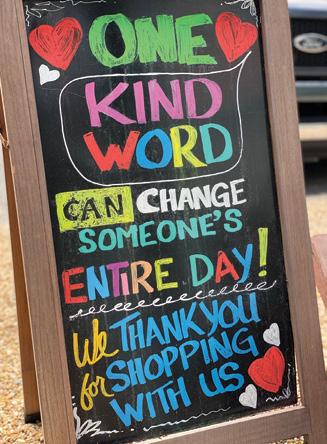 ONE
KIND
WORD
CAN CHANGE
SOMEONE'S
ENTIRE DAY!
We THANK YOU
for SHOPPING
WITH US